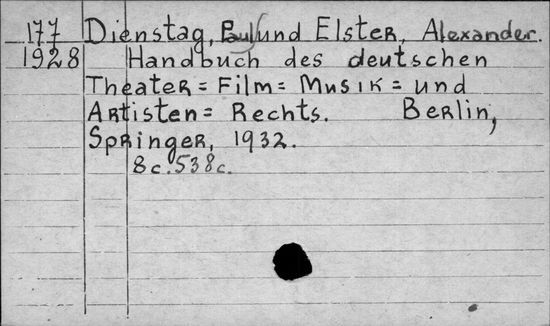 177 Dienstag, Paul und Elster, Alexander.
1928 Handbuch des deutschen
Theater= Film= Musik= und
Artisten= Rechts. Berlin,
Springer, 1932.
8c.538c.